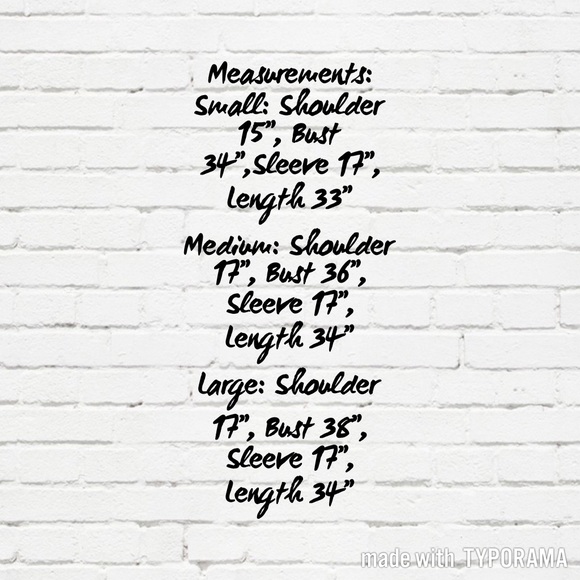 Measurements:
Small: Shoulder
15", Bust
34",Sleeve 17",
Length 33"
Medium: Shoulder
17", Bust 36",
Sleeve 17",
Length 34"
Large: Shoulder
17", Bust 38",
Sleeve 17",
Length 34"
made with TYPORAMA